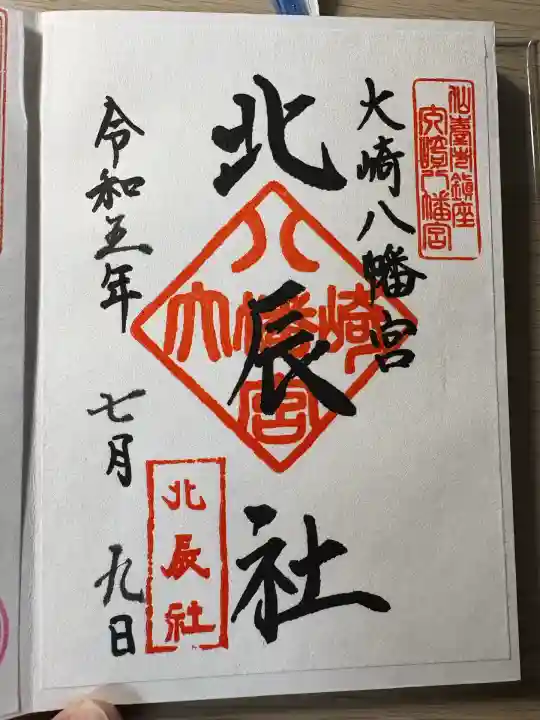 仙臺總鎮座
大崎八幡宮
大崎八幡宮
北辰社
八
大幡崎
宮
北辰社
令和五年
七月
九日